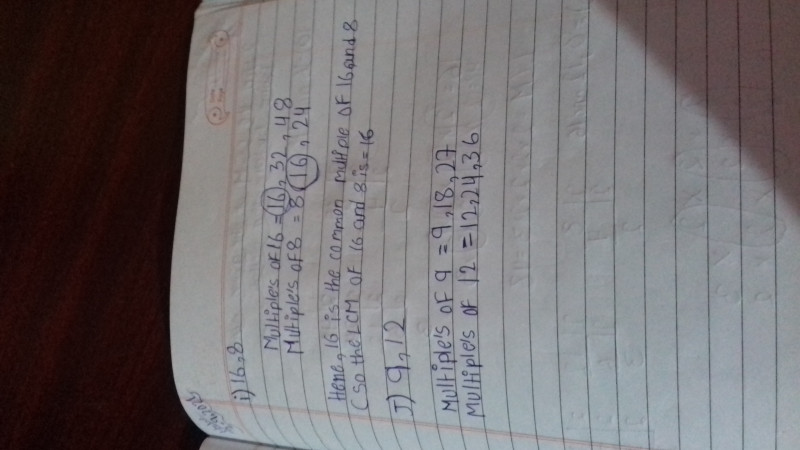 i) 16,8
Multiple's of 16 = 16, 32, 48
Multiple's of 8 = 8, 16, 24
Here, 16 is the common multiple of 16 and 8
(So the LCM of 16 and 8 is = 16
J) 9, 12
Multiple's of 9 = 9, 18, 27
Multiple's of 12 = 12, 24, 36